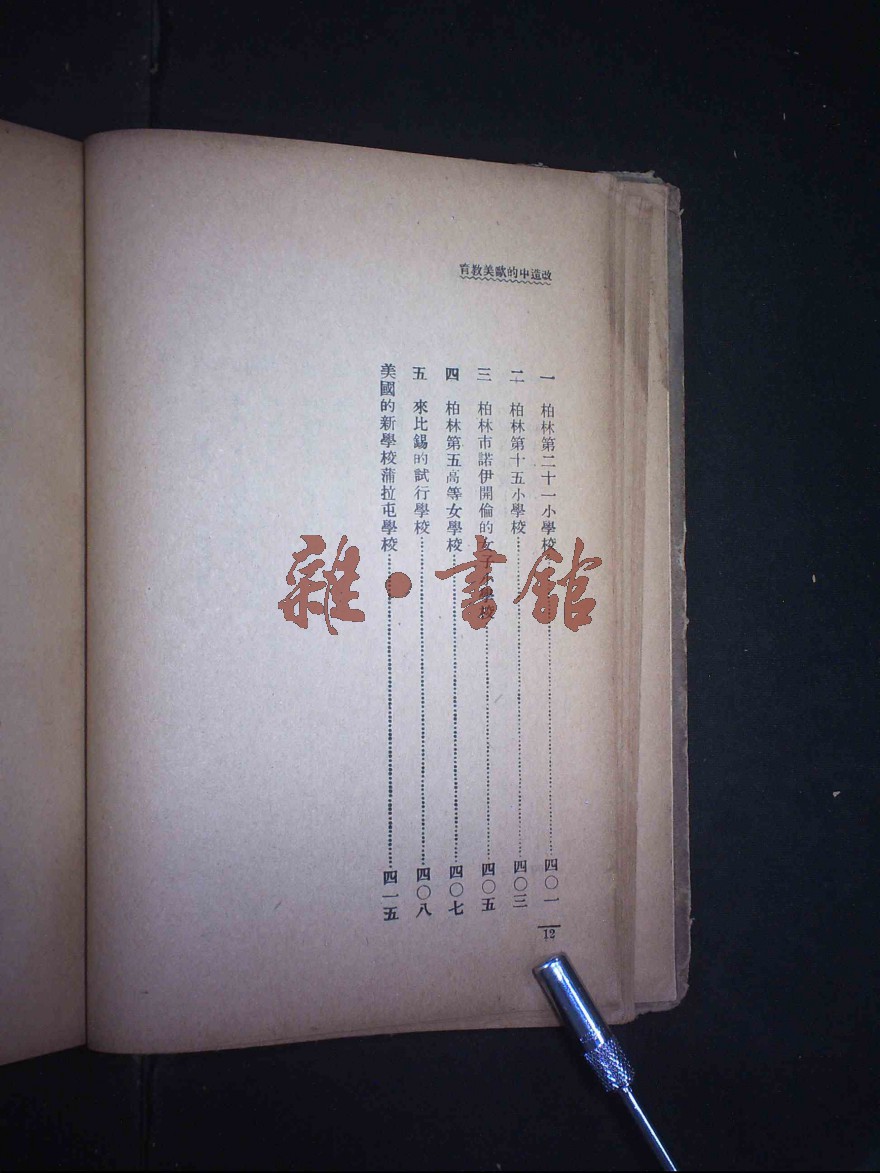 改造中的歐美教育
一　柏林第二十一小學校……四〇一
二　柏林第十五小學校……四〇三
三　柏林市諾伊開倫的女子小學校……四〇五
四　柏林第五高等女學校……四〇七
五　來比錫的試行學校……四〇八
美國的新學校蒲拉屯學校……四一五
12
雜·書館